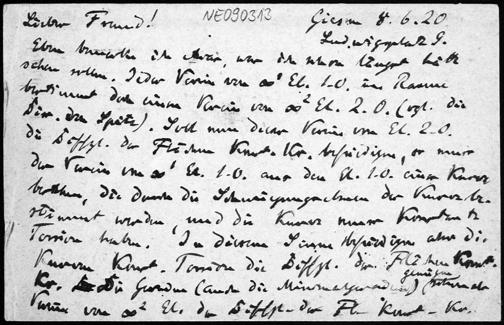 Lieber Freund! NE090313 Giessen 8.6.20
Ludwigsplatz 9.
Eben bemerke ich, was ich schon längst hätte
sehen sollen. Jeder Verein von ∞¹ El. 1.O. im Raume
bestimmt doch einen Verein von ∞² El. 2.O. (vgl. die
). Soll nun dieser Verein von El. 2.O.
die Diffgl. der Flächen Konst. Kr. befriedigen, so muss
der Verein von ∞¹ El. 1.O. aus den El. 1.O. einer Kurve
bestehen, die durch die Schmiegungsebenen der Kurve be-
stimmt werden, und die Kurve muss Konstante
Torsion haben. In diesem Sinne befriedigen also die
Kurven Konst. Torsion die Diffgl. der Flächen Konst.
Kr. Die Geraden (auch die Minimalgeraden)
Verein von ∞² El. der Diffgl. der Fl. Konst. Kr.